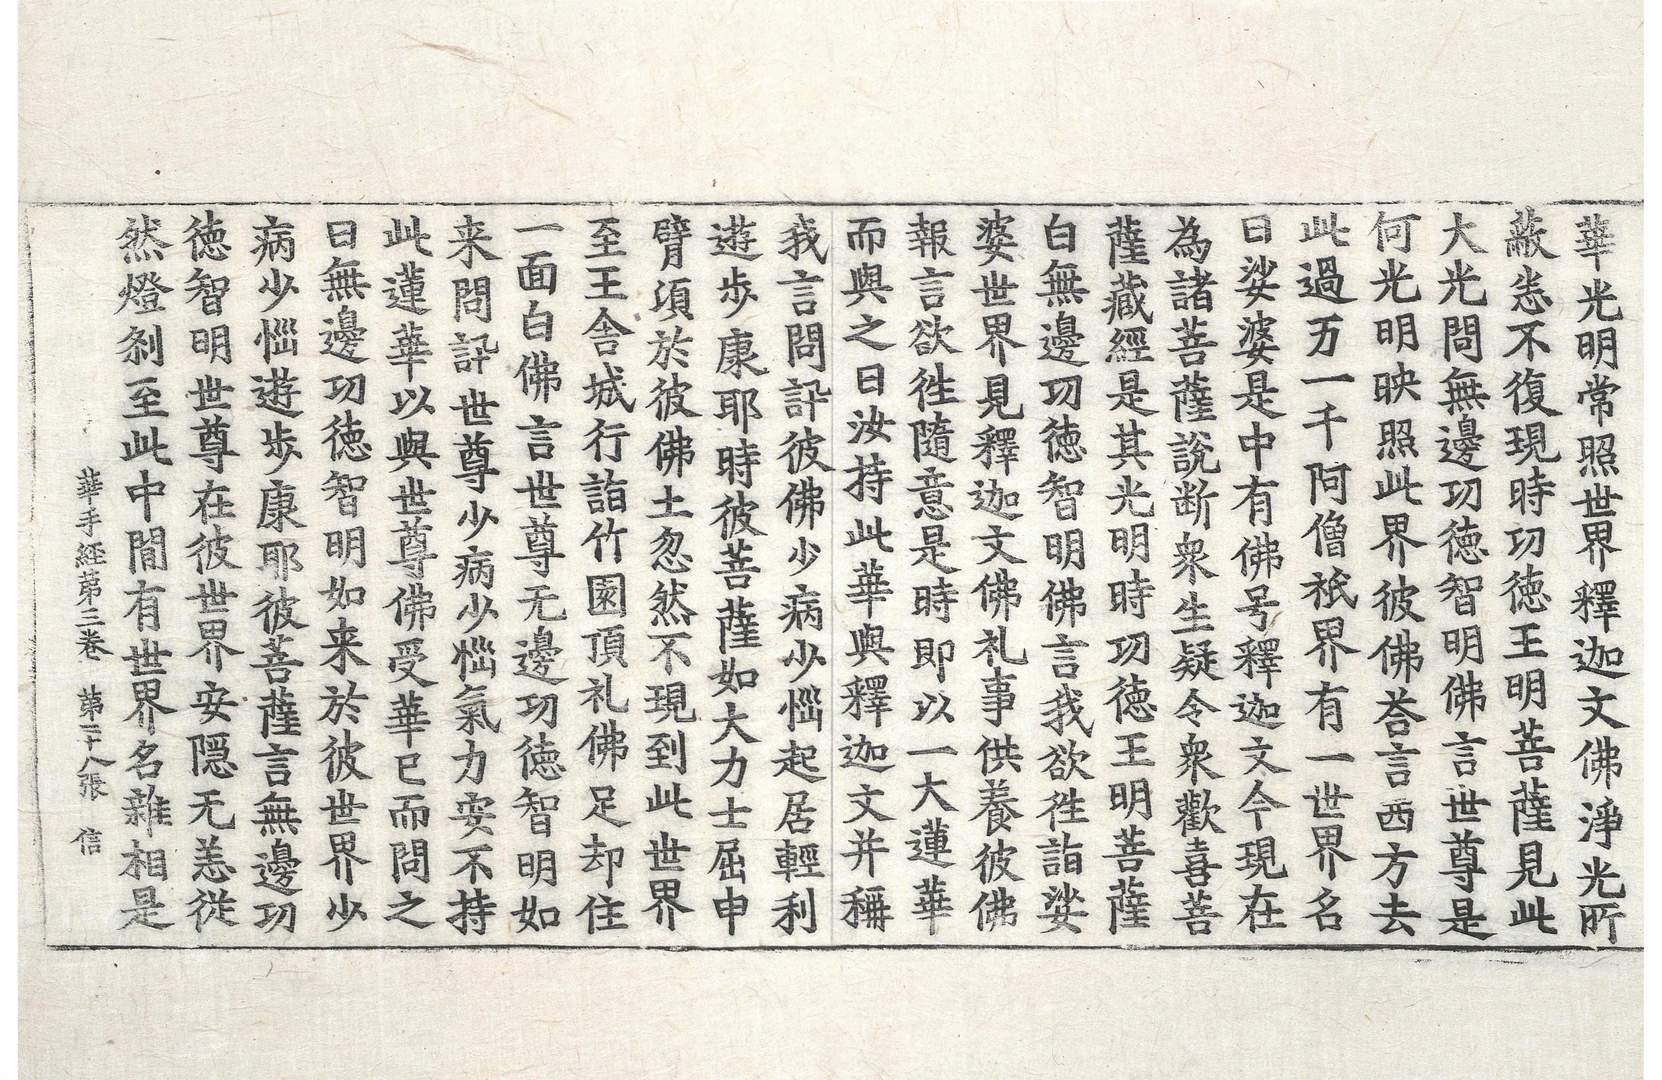 華光明常照世界釋迦文佛淨光所
蔽悉不復現時功徳王明菩薩見此
大光問無邊功徳智明佛言世尊是
何光明映照此界彼佛荅言西方去
此過万一千阿僧祇界有一世界名
曰娑婆是中有佛号釋迦文今現在
為諸菩薩說断衆生疑令衆歡喜菩
薩藏經是其光明時功徳王明菩薩
白無邊功徳智明佛言我欲徃詣娑
婆世界見釋迦文佛礼事供養彼佛
報言欲徃隨意是時即以一大蓮華
而與之曰汝持此華與釋迦文并稱
我言問訊彼佛少病少惱起居輕利
遊步康耶時彼菩薩如大力士屈申
臂湏於彼佛土忽然不現到此世界
至王舍城行詣竹園頂礼佛足却住
一面白佛言世尊无邊功徳智明如
来問訊世尊少病少惱氣力安不持
此蓮華以與世尊佛受華已而問之
曰無邊功徳智明如来於彼世界少
病少惱遊步康耶彼菩薩言無邊功
徳智明世尊在彼世界安隠无恙従
然燈刹至此中間有世界名雜相是
華手経苐三卷 第二十八張 信